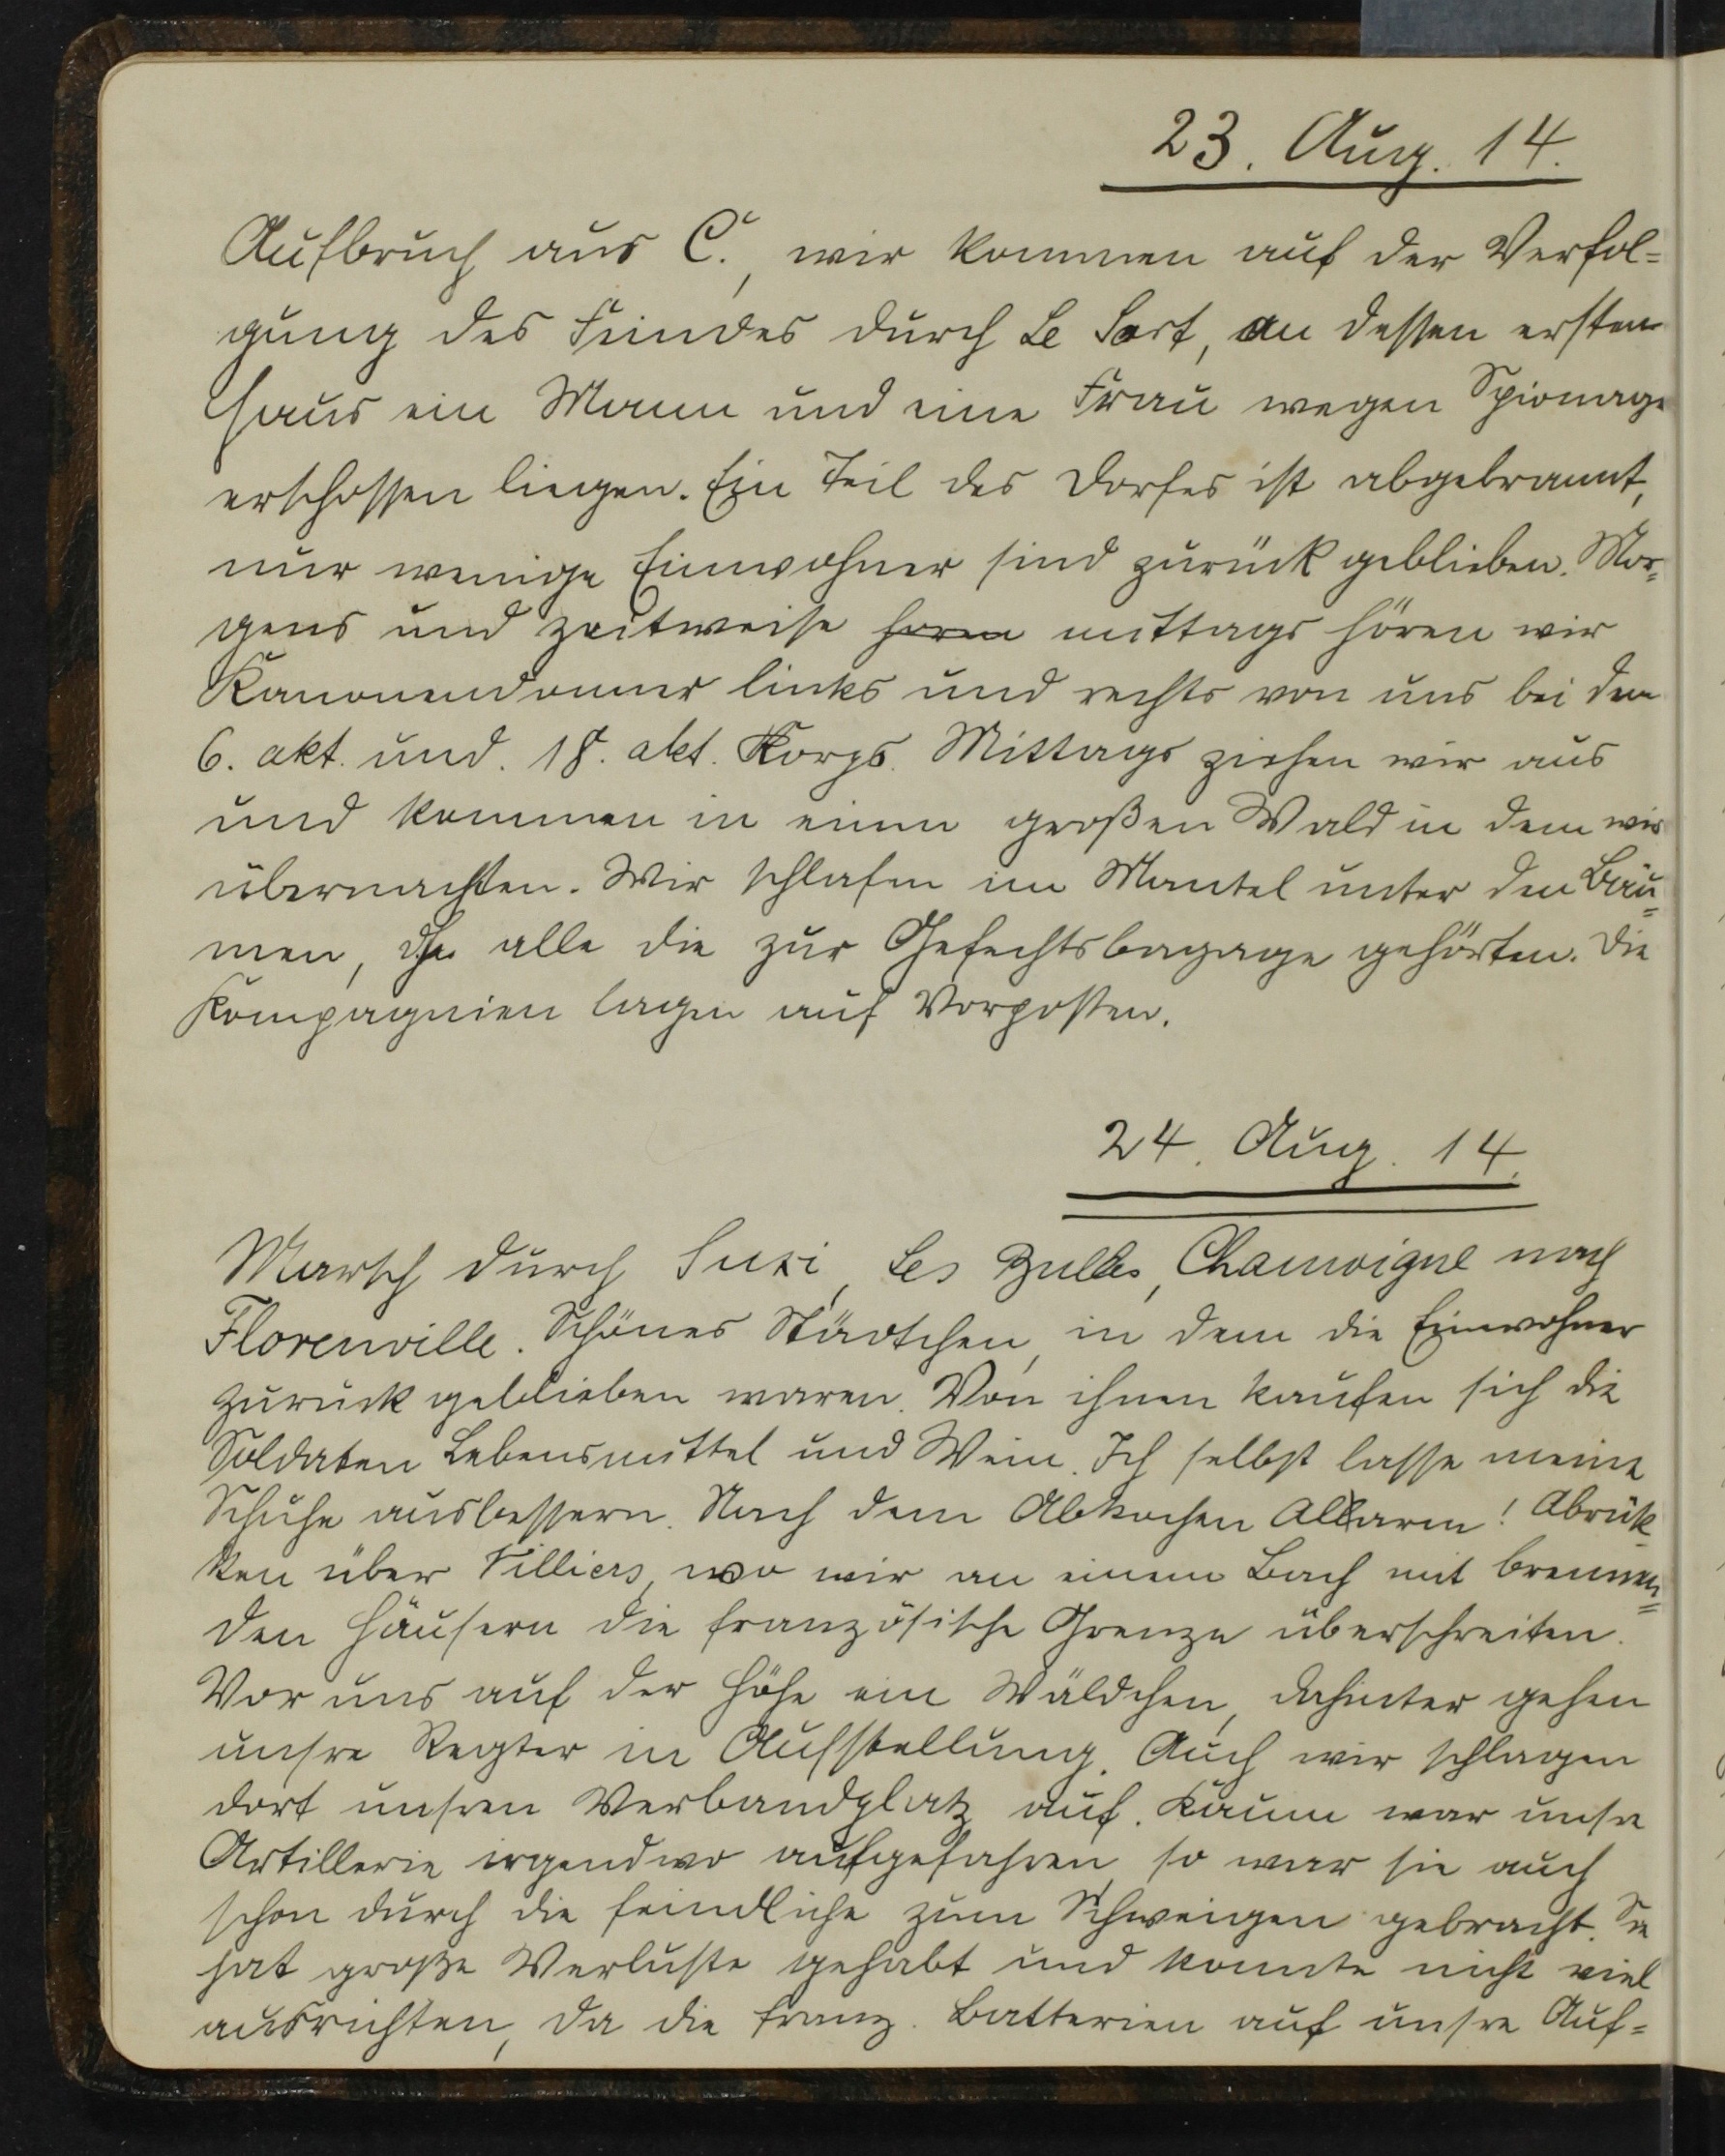 23. Aug. 14.
Aufbruch aus C., wir kommen auf der Verfol=
gung des Feindes durch Le Sart, an dessen ersten
Haus ein Mann und eine Frau wegen Spionage
erschossen liegen. Ein Teil des Dorfes ist abgebrannt,
nur wenige Einwohner sind zurück geblieben. Mor=
gens und zeitweise horen mittags hören wir
Kanonendonner links und rechts von uns bei dem
6. akt. und. 18. akt. Korps. Mittags ziehen wir aus
und kommen in einen großen Wald in dem wir
übernachten. Wir schlafen im Mantel unter den Bäu=
men, d.h. alle die zur Gefechtsbagage gehörten. Die
Kompagnien lagen auf Vorposten.
24. Aug. 14.
Marsch durch Suxi, Les Bulles, Chamoigne nach
Florenville. Schönes Städtchen, in dem die Einwohner
zurück geblieben waren. Von ihnen kaufen sich die
Soldaten Lebensmittel und Wein. Ich selbst lasse meine
Schuhe ausbessern. Nach dem Abkochen Allarm! Abrük=
ken über Villiers, wo wir an einem Bach mit brennen=
den Häusern die französische Grenze überschreiten.
Vor uns auf der Höhe ein Wäldchen, dahinter gehen
unsre Regter in Aufstellung. Auch wir schlagen
dort unsren Verbandplatz auf. Kaum war unsre
Artillerie irgendwo aufgefahren, so war sie auch
schon durch die feindliche zum Schweigen gebracht. Sie
hat große Verluste gehabt und konnte nicht viel
ausrichten, da die franz. Batterien auf unsre Auf=